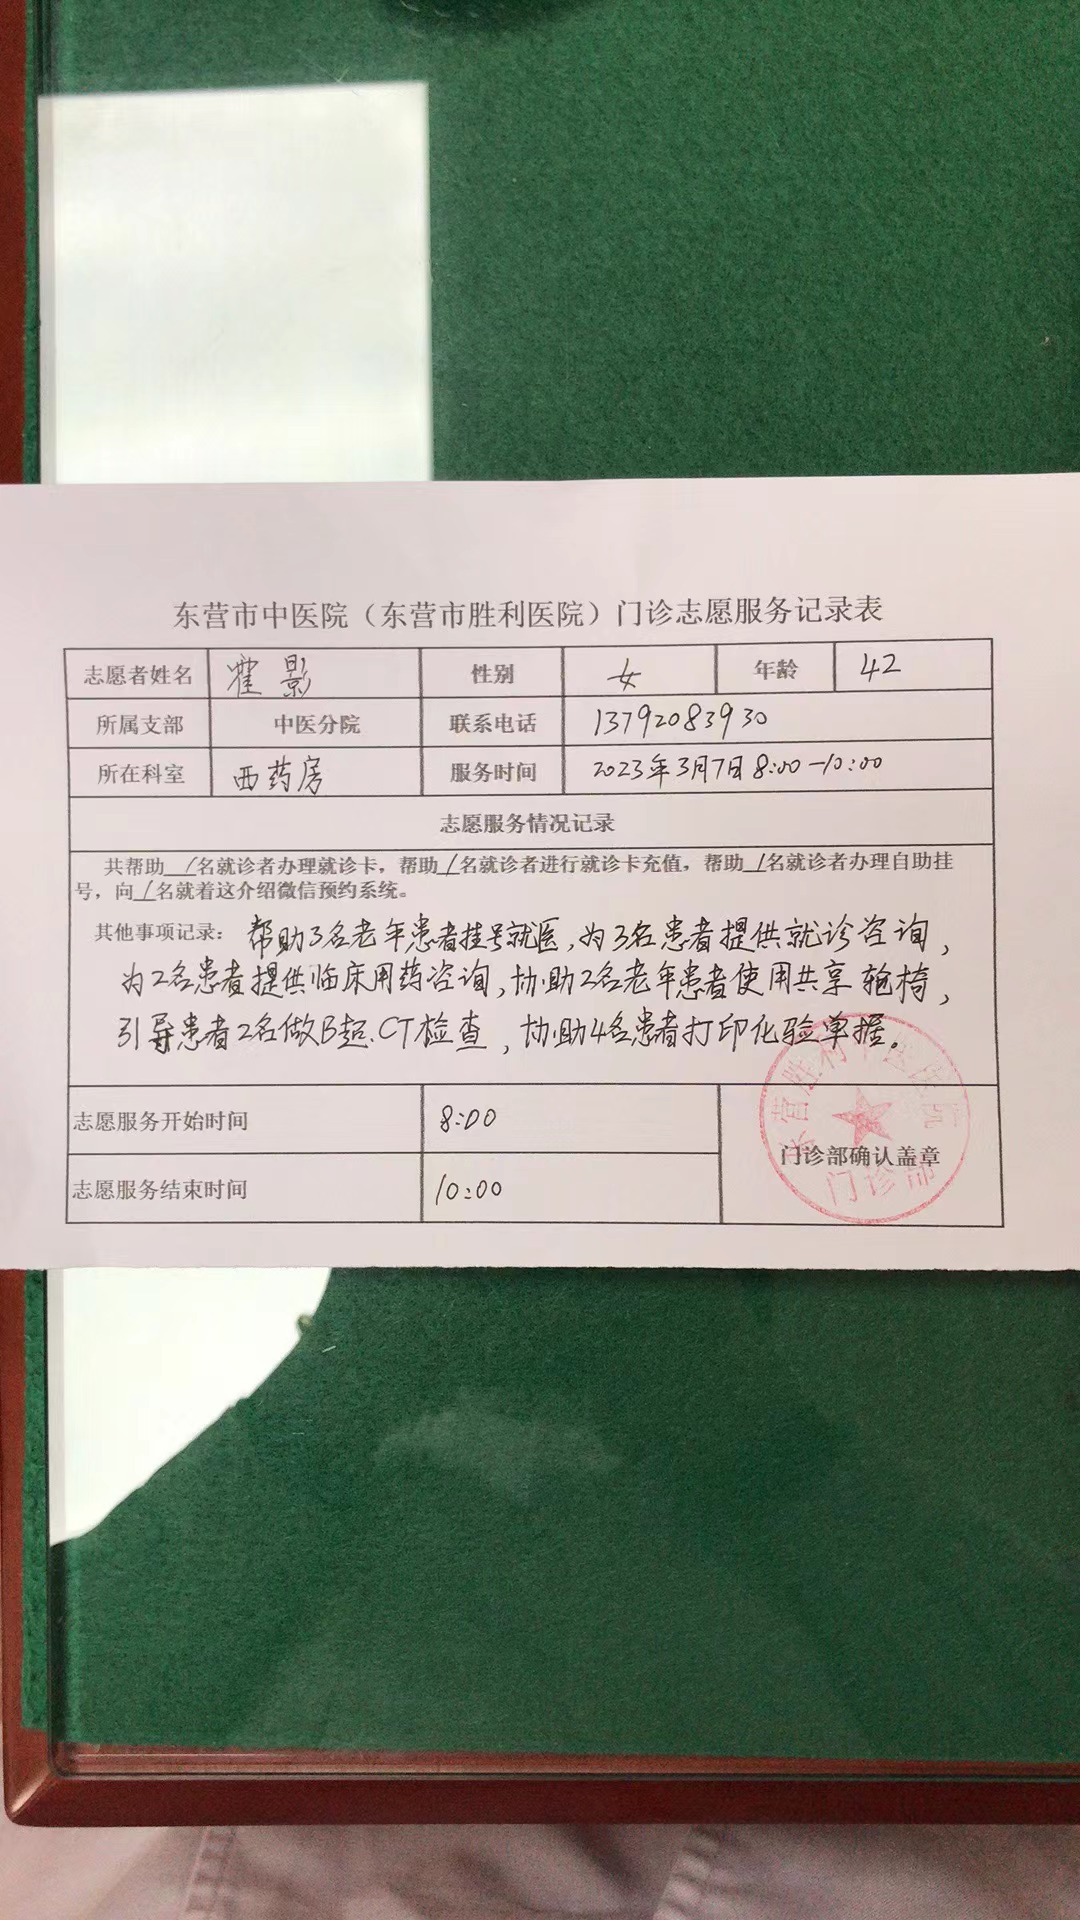 东营市中医院（东营市胜利医院）门诊志愿服务记录表
志愿者姓名 霍影 性别 女 年龄 42
所属支部 中医分院 联系电话 13792083930
所在科室 西药房 服务时间 2023年3月7日 8:00-10:00
志愿服务情况记录
共帮助/名就诊者办理就诊卡，帮助/名就诊者进行就诊卡充值，帮助/名就诊者办理自助挂
号，向/名就着这介绍微信预约系统。
其他事项记录：帮助3名老年患者挂号就医，为3名患者提供就诊咨询，
为2名患者提供临床用药咨询，协助2名老年患者使用共享轮椅，
引导患者2名做B超.CT检查，协助4名患者打印化验单据。
志愿服务开始时间 8:00
门诊部确认盖章
志愿服务结束时间 10:00
门诊部